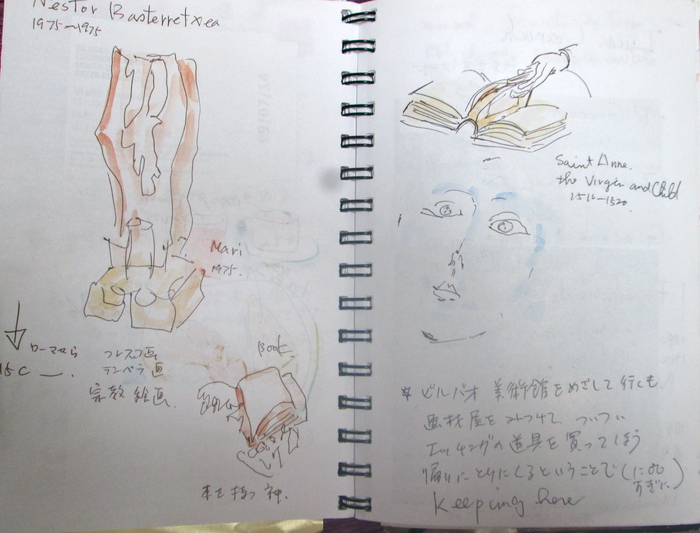 Nestor Basterretxea
1975~1975
Mari
1975.
ローマから
15C
フレスコ画
テンペラ画
宗教絵画
Book
本を持つ神.
Saint Anne.
the Virgin and Child
1516-1520.
* ビルバオ 美術館をめざして行くも
画材屋をみつけて、ついつい
エッチングの道具を買ってしまう
帰りにとりにくるということで(にもつ
すぎに)
Keeping here